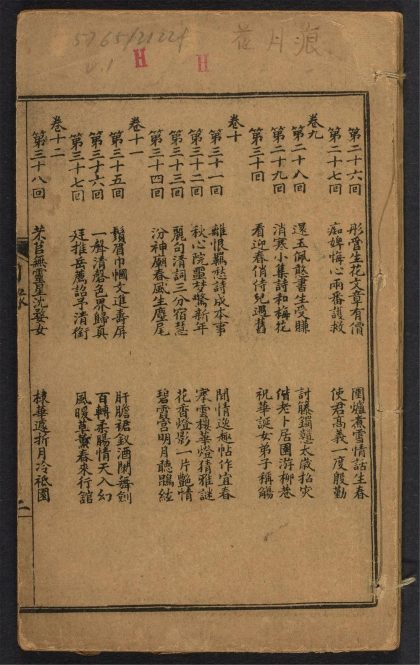 5765/2122f
v.1
H
H
花月痕
第二十六回 彤管生花文章有價 圍爐煮雪情話生春
第二十七回 痴婢悔心兩番護救 使君高義一度殷勤
卷九
第二十八回 還玉佩憨書生受賺 討藤鐲戇太歲招災
第二十九回 消寒小集詩和梅花 偕老卜居園游柳巷
第三十回 看迎春俏侍兒遇舊 祝華誕女弟子稱觴
卷十
第三十一回 離恨羈愁詩成本事 閒情逸趣帖作宜春
第三十二回 秋心院噩夢驚新年 搴雲樓華燈猜雅謎
第三十三回 麗句清詞三分宿慧 花香燈影一片艷情
第三十四回 汾神廟春風生麈尾 碧霄宮明月聽鵾絃
卷十一
第三十五回 鬚眉巾幗文進壽屏 肝膽裙釵酒闌舞劍
第三十六回 一聲清磬色界歸真 百轉柔腸情天入幻
第三十七回 廷推岳薦詔予清銜 風暖草薰春來行館
卷十二
第三十八回 芣苢無靈星沈婺女 棣華遽折月冷祗園
二